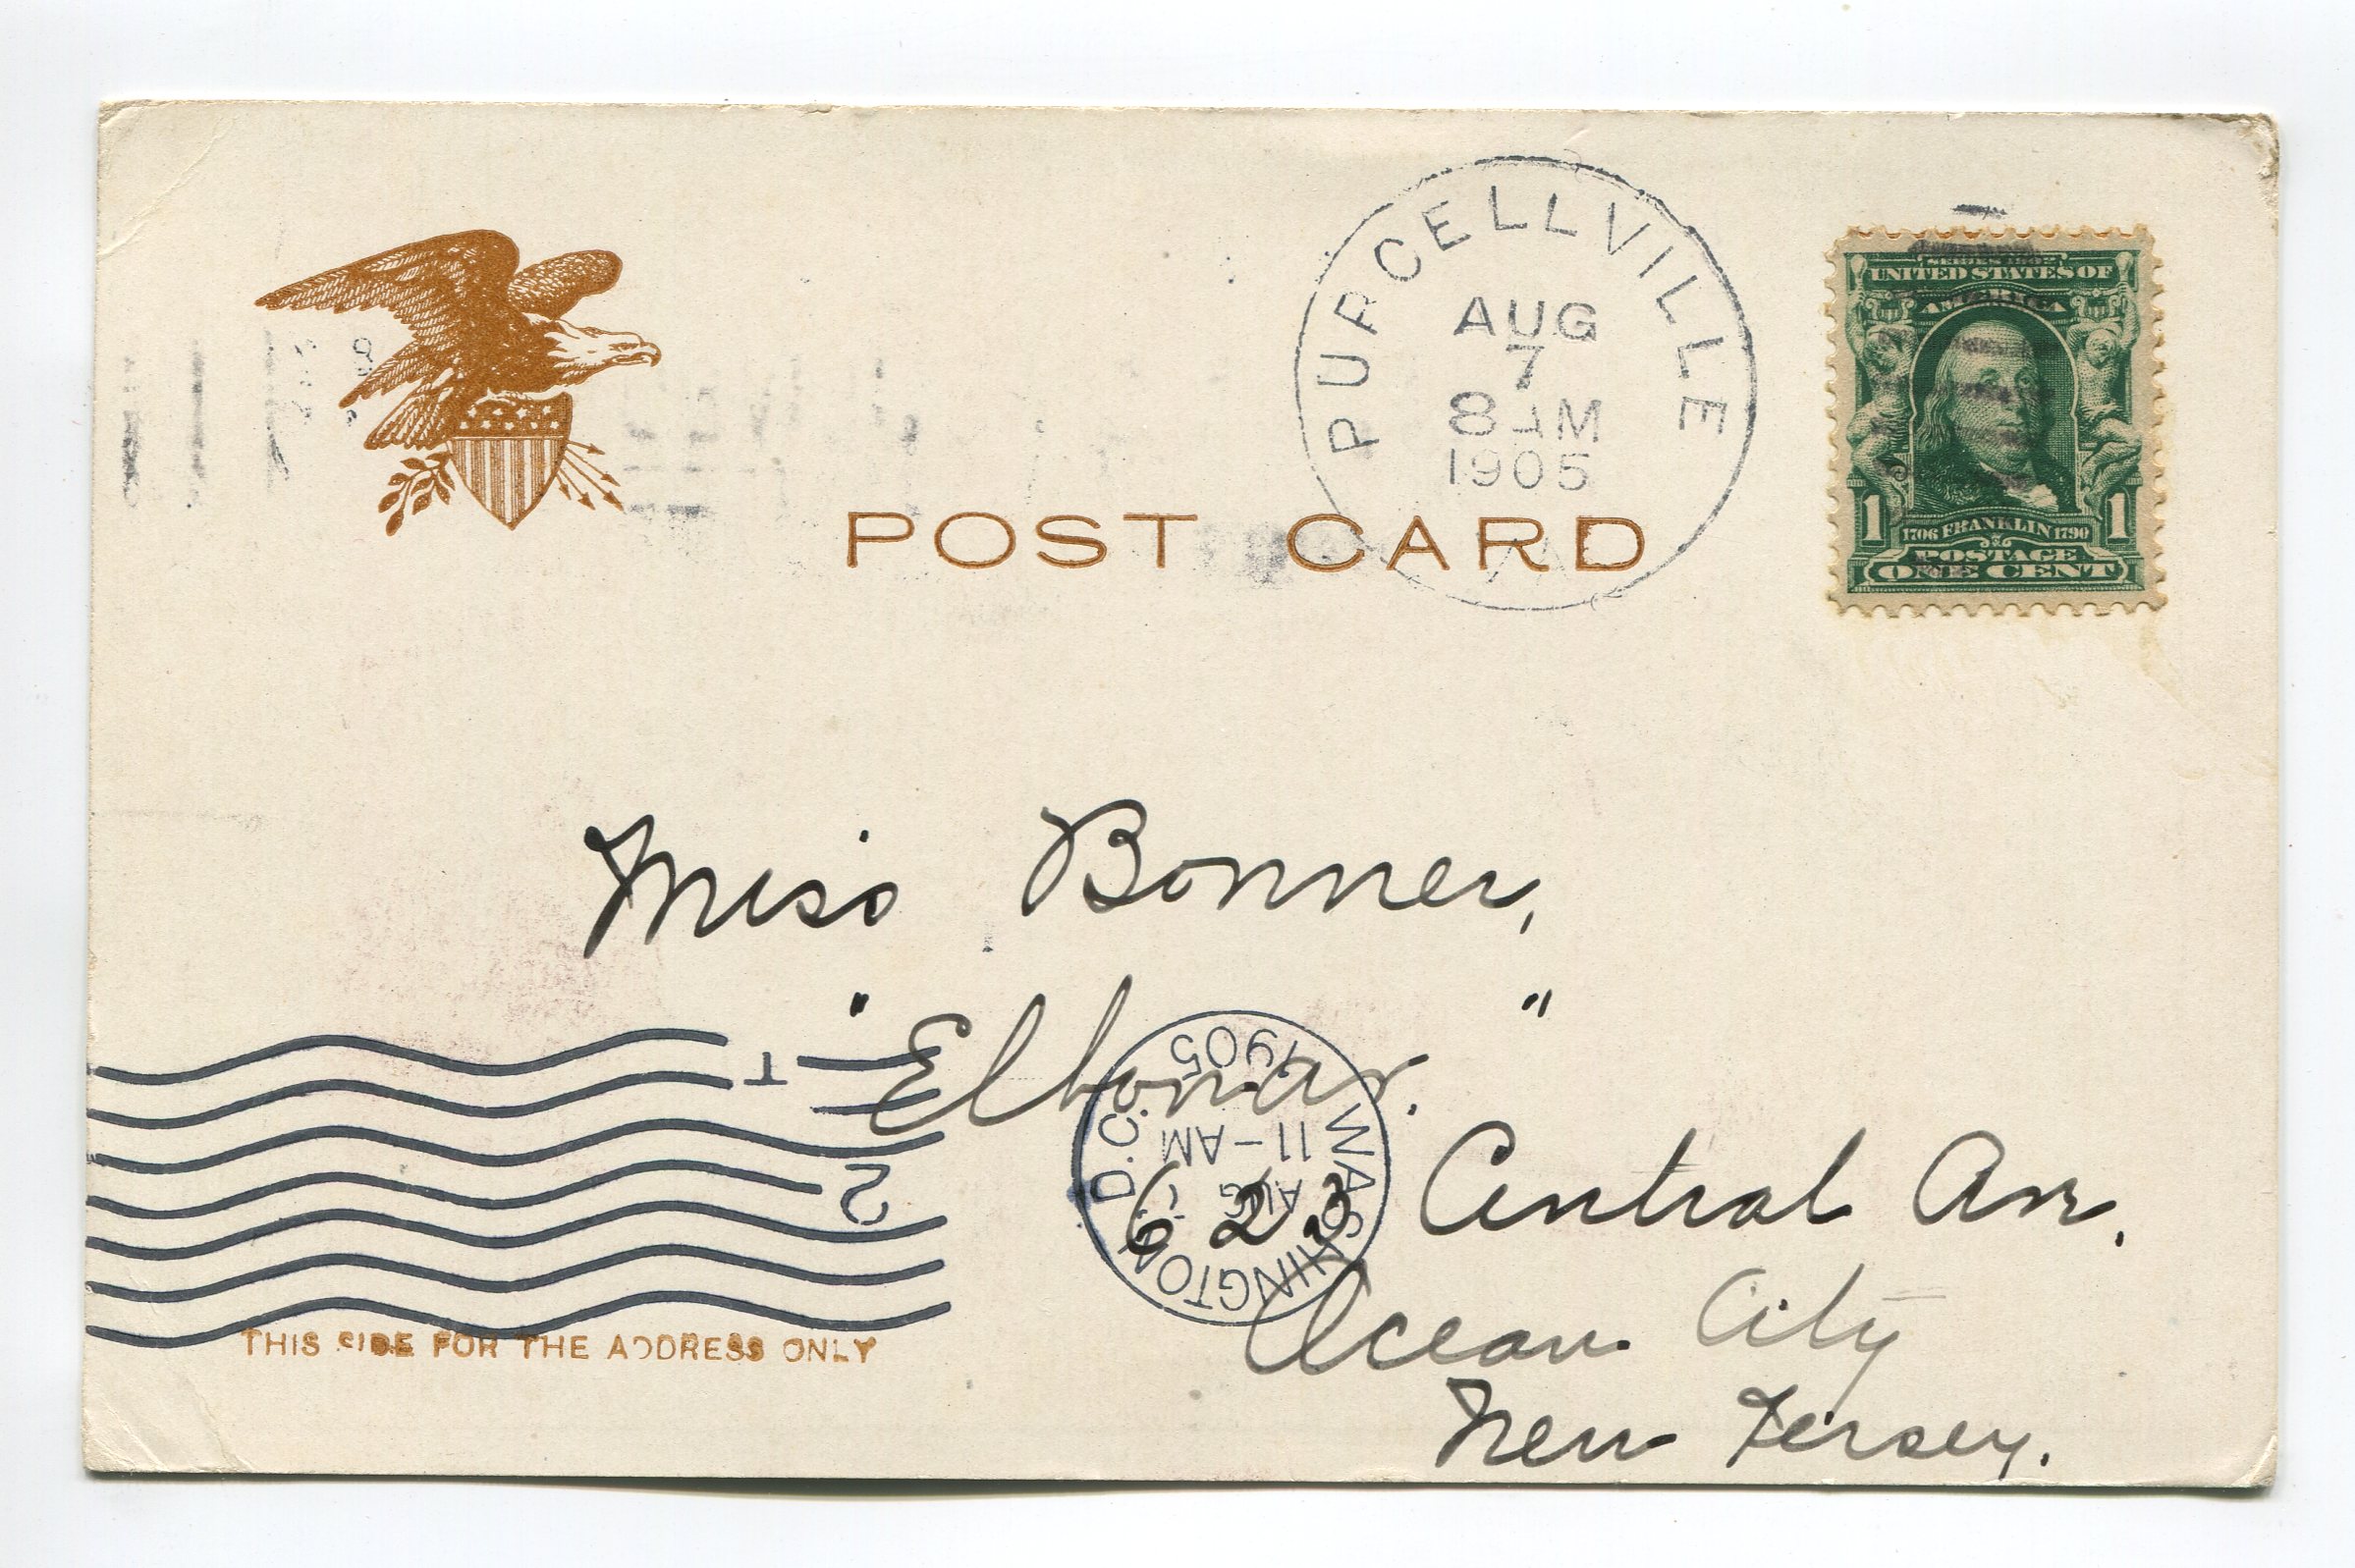 PURCELLVILLE
AUG
7
8 AM
1905
VA
SERIES 1902
UNITED STATES OF
AMERICA
1 1706 FRANKLIN 1790 1
POSTAGE
ONE CENT
POST CARD
Miss Bonner,
"Elbonar."
Central Ave.
Ocean City
New Jersey.
WASHINGTON, D.C.
AUG
11-AM
1905
T
2
THIS SIDE FOR THE ADDRESS ONLY